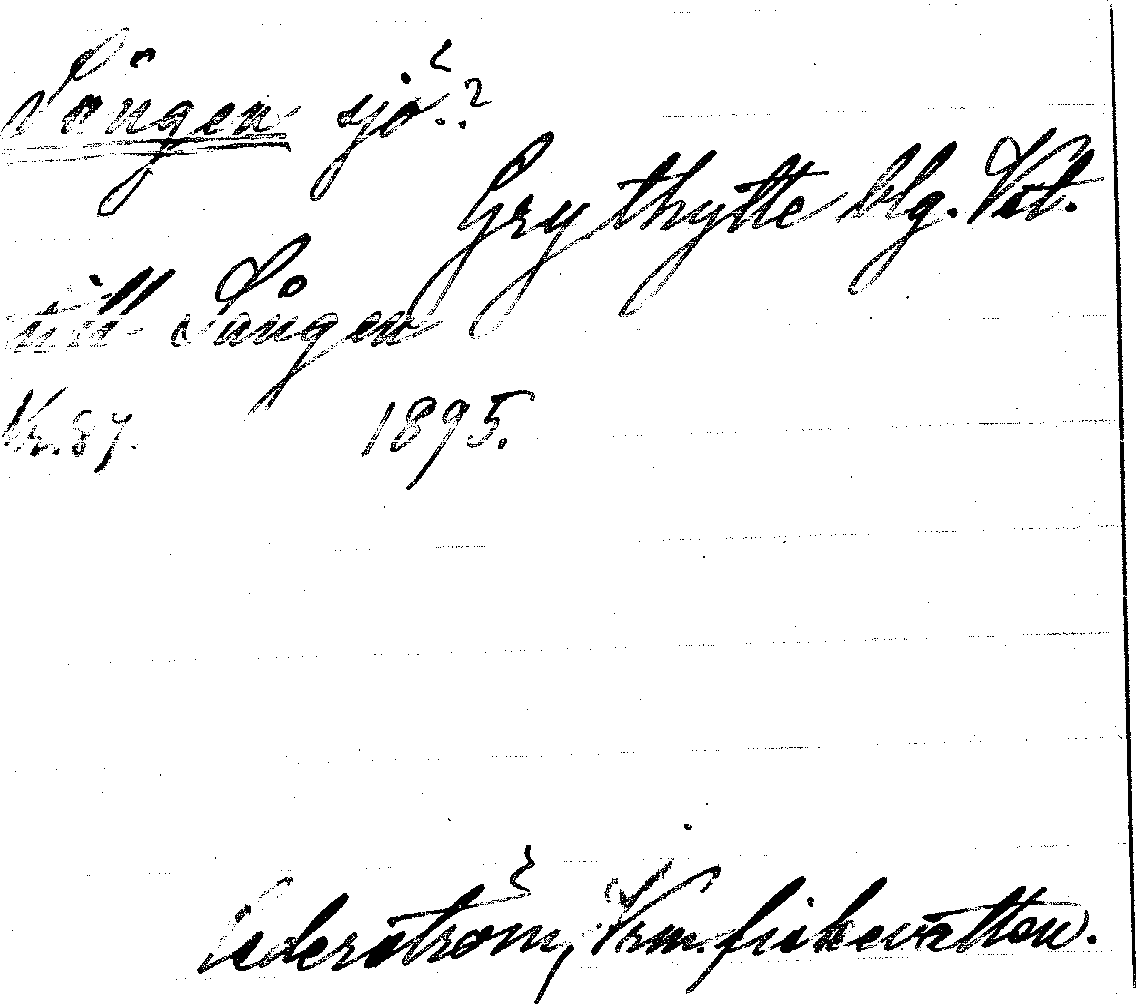 Sången sjö??
Grythytte blg. Vst.
till Sången
1895.
Cederström, Vrm. fiskevatten.